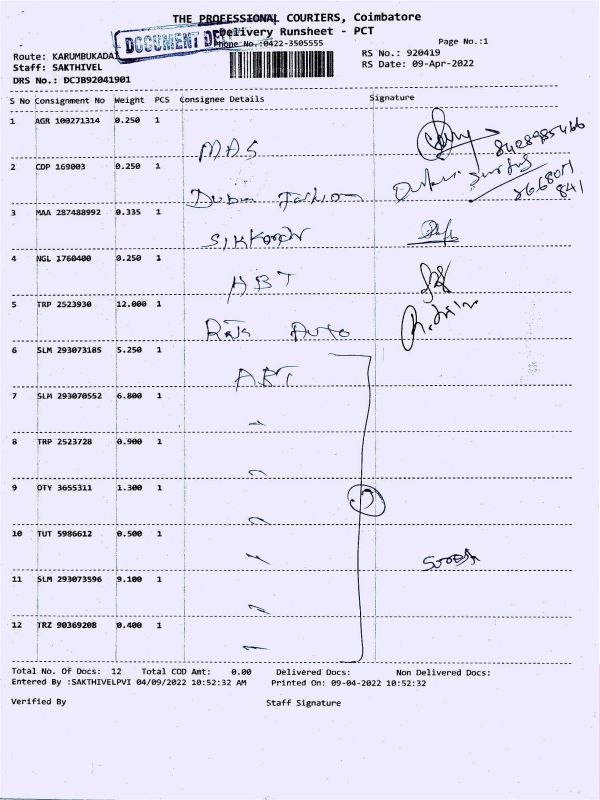 THE PROFESSIONAL COURIERS, Coimbatore
Delivery Runsheet - PCT
DOCUMENT
Phone No.:0422-3505555
Page No.:1
Route: KARUMBUKADAI
RS No.: 920419
Staff: SAKTHIVEL
RS Date: 09-Apr-2022
DRS No.: DCJB92041901
S No Consignment No Weight PCS Consignee Details Signature
1 AGR 100271314 0.250 1
MAS
8428985466
2 CDP 169003 0.250 1
3 MAA 287488992 0.335 1
4 NGL 1760400 0.250 1
ABT
5 TRP 2523930 12.000 1
Auto
6 SLM 293073185 5.250 1
ABT
7 SLM 293070552 6.800 1
8 TRP 2523728 0.900 1
9 OTY 3655311 1.300 1
10 TUT 5986612 0.500 1
11 SLM 293073596 9.100 1
12 TRZ 90369208 0.400 1
Total No. Of Docs: 12 Total COD Amt: 0.00 Delivered Docs: Non Delivered Docs:
Entered By :SAKTHIVELPVI 04/09/2022 10:52:32 AM Printed On: 09-04-2022 10:52:32
Verified By Staff Signature